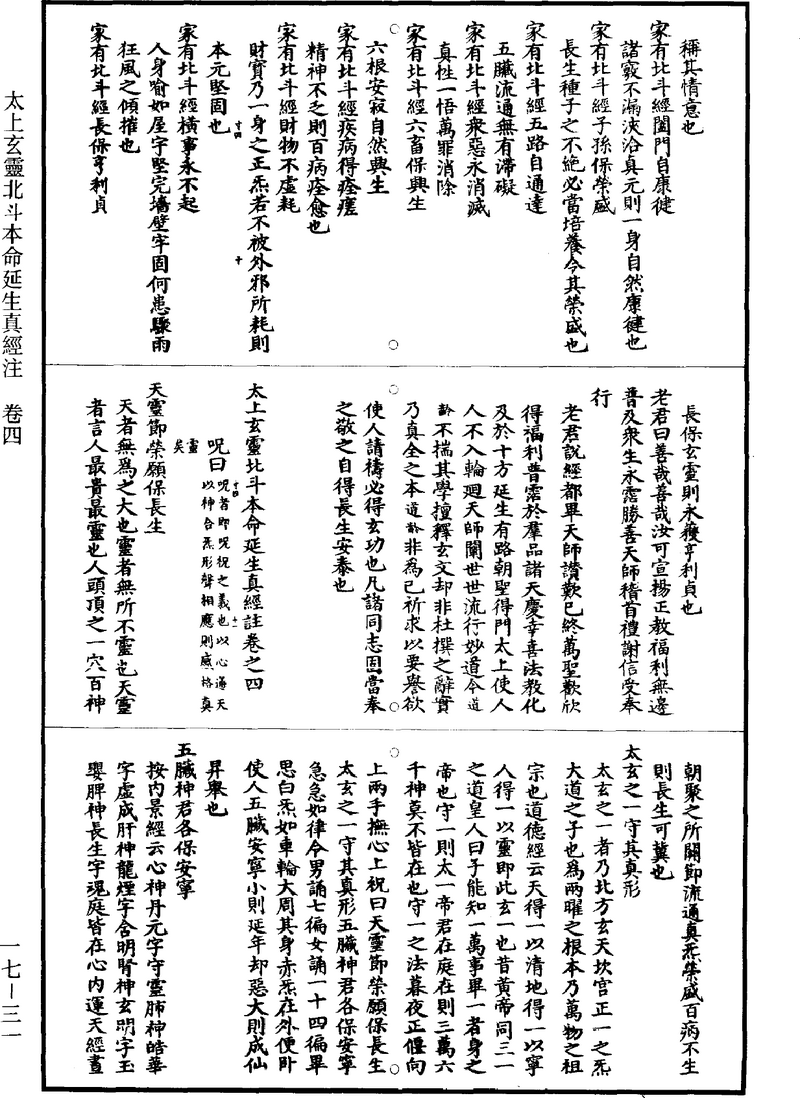 太上玄靈北斗本命延生真經注 卷四
一七—三一
稱其情意也
家有北斗經闔門自康健
諸竅不漏浹洽真元則一身自然康健也
家有北斗經子孫保榮盛
長生種子之不絶必當培養令其榮盛也
家有北斗經五路自通達
五臟流通無有滯礙
家有北斗經衆惡永消滅
真性一悟萬罪消除
家有北斗經六畜保興生
六根安寂自然興生
家有北斗經疾病得痊瘥
精神不乏則百病痊愈也
家有北斗經財物不虛耗
財寶乃一身之正炁若不被外邪所耗則
本元堅固也
家有北斗經橫事永不起
人身喻如屋宇堅完墻壁牢固何患驟雨
狂風之傾摧也
家有北斗經長保亨利貞
長保玄靈則永獲亨利貞也
老君曰善哉善哉汝可宣揚正教福利無邊
普及衆生永霑勝善天師稽首禮謝信受奉
行
老君說經都畢天師讚歎已終萬聖歡欣
得福利普霑於羣品諸天慶幸喜法教化
及於十方延生有路朝聖得門太上使人
人不入輪廻天師闡世世流行妙道今道
齡不揣其學擅釋玄文却非杜撰之辭實
乃真全之本道齡非爲己祈求以要譽欲
使人請禱必得玄功也凡諸同志固當奉
之敬之自得長生安泰也
太上玄靈北斗本命延生真經註卷之四
呪曰呪者即呪祝之義也以心通天
以神合炁形聲相應則感格真
靈
矣
天靈節榮願保長生
天者無爲之大也靈者無所不靈也天靈
者言人最貴最靈也人頭頂之一穴百神
朝聚之所關節流通真炁榮盛百病不生
則長生可冀也
太玄之一守其真形
太玄之一者乃北方玄天坎宫正一之炁
大道之子也爲兩曜之根本乃萬物之祖
宗也道德經云天得一以清地得一以寧
人得一以靈即此玄一也昔黄帝問三一
之道皇人曰子能知一萬事畢一者身之
帝也守一則太一帝君在庭在則三萬六
千神莫不皆在也守一之法暮夜正偃向
上兩手撫心上祝曰天靈節榮願保長生
太玄之一守其真形五臟神君各保安寧
急急如律令男誦七徧女誦一十四徧畢
思白炁如車輪大周其身赤炁在外便卧
使人五臟安寧小則延年却惡大則成仙
昇舉也
五臟神君各保安寧
按内景經云心神丹元字守靈肺神皓華
字虛成肝神龍煙字含明腎神玄明字玉
嬰脾神長生字魂庭皆在心内運天經晝